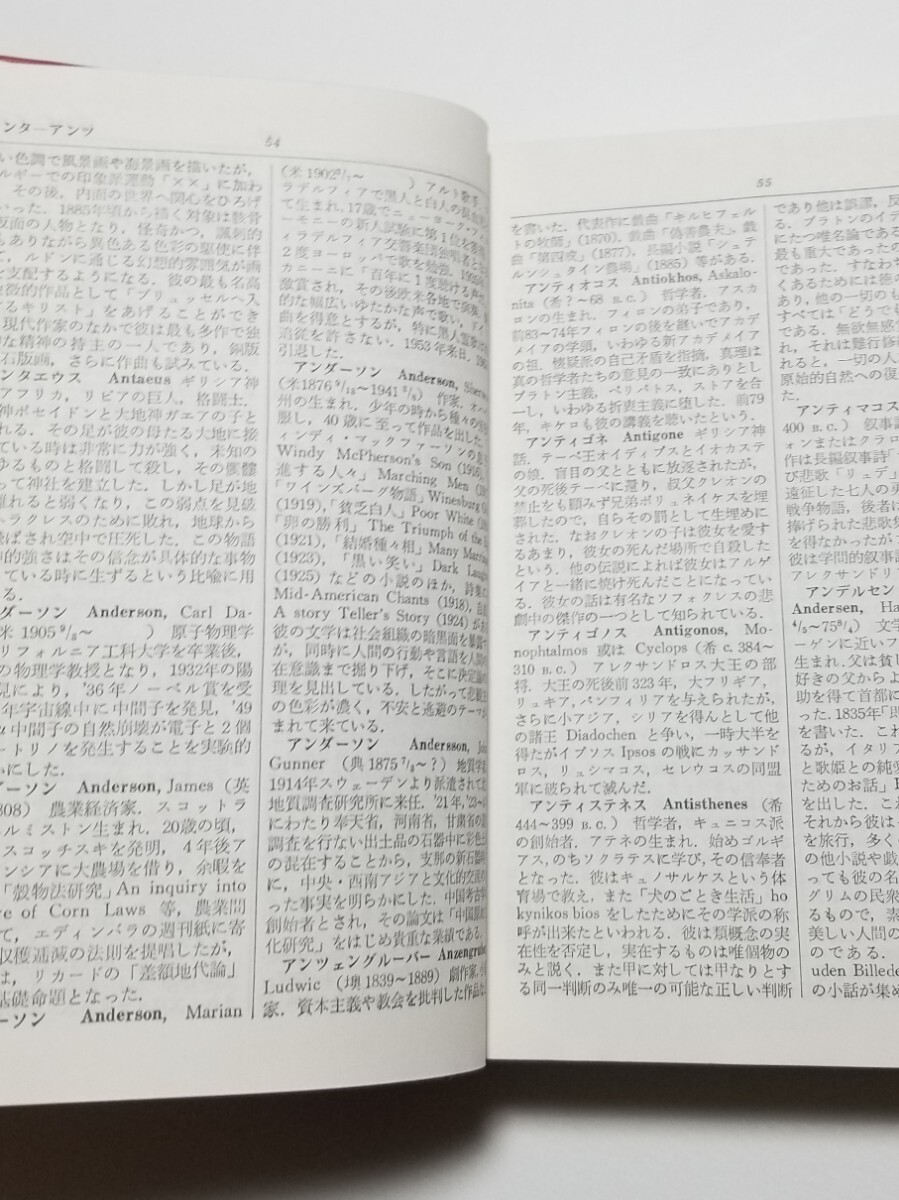 ンターアンツ
54
い色調で風景画や海景画を描いたが,
ルギーでの印象派運動「××」に加わ
その後, 内面の世界へ関心をひろげ
いった. 1885年頃から描く対象は骸骨
仮面の人物となり, 怪奇かつ, 諷刺的
もありながら異色ある色彩の駆使に伴
ルドンに通じる幻想的雰囲気が画
支配するようになる. 彼の最も名高
徴的作品として「ブリュッセルへ入
るキリスト」をあげることができ
現代作家のなかで彼は最も多作で独
的な精神の持主の一人であり, 銅版
石版画, さらに作曲も試みている.
ンタエウス Antaeus ギリシア神
アフリカ, リビアの巨人, 格闘士.
神ポセイドンと大地神ガエアの子と
れる. その足が彼の母たる大地に接
ている時は非常に力が強く, 未知の
ゆるものと格闘して殺し, その髑髏
って神社を建立した. しかし足が地
離れると弱くなり, この弱点を見破
ラクレスのために敗れ, 地球から
ばされ空中で圧死した. この物語
的強さはその信念が具体的な事物
ている時に生ずるという比喩に用
る.
ダーソン Anderson, Carl Da-
米 1905 9/3~ ) 原子物理学
リフォルニア工科大学を卒業後,
の物理学教授となり, 1932年の陽
見により, '36年ノーベル賞を受
年宇宙線中に中間子を発見, '49
μ中間子の自然崩壊が電子と2個
ートリノを発生することを実験的
かにした.
ダーソン Anderson, James (英
808) 農業経済家. スコットラ
ルミストン生まれ. 20歳の頃,
スコッチスキを発明, 4年後ア
ンシアに大農場を借り, 余暇を
「穀物法研究」An inquiry into
re of Corn Laws 等, 農業間
て, エディンバラの週刊紙に寄
収穫逓減の法則を提唱したが,
は, リカードの「差額地代論」
基礎命題となった.
ーソン Anderson, Marian
(米 1902 2/7~ ) アルト歌手.
ラデルフィアで黒人と白人の混血
て生まれ, 17歳でニューヨーク・フィ
ーモニーの新人試験に第1位を獲得
ィラデルフィア交響楽団独唱者と
2度ヨーロッパで歌を勉強. 1935年
カニーニに「百年に1度聴ける声
激賞され, その後欧米各地で演奏.
的な幅広いゆたかな声で歌い, ド
曲を得意とするが, 特に黒人霊歌
追従を許さない. 1953年来日.
引退した.
アンダーソン Anderson, Sher
(米1876 9/13~1941 3/8) 作家. オハ
州の生まれ. 少年の時から種々の
服し, 40歳に至って作品を出した.
ィンディ・マックファーソンの息
Windy McPherson's Son (1916),
進する人々」Marching Men (19
「ワインズバーグ物語」Winesburg O
(1919), 「貧乏白人」Poor White (19
「卵の勝利」The Triumph of the
(1921), 「結婚種々相」Many Marri
(1923), 「黒い笑い」Dark Laugh
(1925) などの小説のほか, 詩集
Mid-American Chants (1918), 自
A story Teller's Story (1924) が
彼の文学は社会組織の暗黒面を暴露
が, 同時に人間の行動や言語を人間
在意識まで掘り下げ, そこに決定論
理を見出している. したがって悲観主
の色彩が濃く, 不安と逃避のテーマ
まれて来ている.
アンダーソン Andersson, Joh
Gunner (典 1875 7/3~?) 地質学者.
1914年スウェーデンより派遣されて
地質調査研究所に来任. '21年, '23~
にわたり奉天省, 河南省, 甘粛省の
調査を行ない出土品の石器中に彩色
の混在することから, 支那の新石器
に, 中央・西南アジアと文化的交流
った事実を明らかにした. 中国考古学
創始者とされ, その論文は「中国原始
化研究」をはじめ貴重な業績である.
アンツェングルーバー Anzengrube
Ludwic (墺 1839~1889) 劇作家, 小
家. 資本主義や教会を批判した作品な
55
を書いた. 代表作に戯曲「キルヒフェル
トの牧師」(1870), 戯曲「偽善農夫」, 戯
曲「第四戒」(1877), 長編小説「シュテ
ルンシュタイン農場」(1885) 等がある.
アンティオコス Antiokhos, Askalo-
nita (希?~68 B.C.) 哲学者. アスカ
ロンの生まれ. フィロンの弟子であり,
前83~74年フィロンの後を継いでアカデ
メイアの学頭, いわゆる新アカデメイア
の祖. 懐疑派の自己矛盾を指摘. 真理は
真の哲学者たちの意見の一致にありとし
プラトン主義, ペリパトス, ストアを合
一し, いわゆる折衷主義に堕した. 前79
年, キケロも彼の講義を聴いたという.
アンティゴネ Antigone ギリシア神
話. テーベ王オイディプスとイオカステ
の娘. 盲目の父とともに放浪したが,
父の死後テーベに還り, 叔父クレオンの
禁止をも顧みず兄弟ポリュネイケスを埋
葬したので, 自らその罰として生埋めに
された. なおクレオンの子は彼女を愛す
るあまり, 彼女の死んだ場所で自殺した
という. 他の伝説によれば彼女はアルゲ
イアと一緒に焼け死んだことになってい
る. 彼女の話は有名なソフォクレスの悲
劇中の傑作の一つとして知られている.
アンティゴノス Antigonos, Mo-
nophtalmos 或は Cyclops (希 c. 384~
310 B.C.) アレクサンドロス大王の部
将. 大王の死後前323年, 大フリギア,
リュキア, パンフィリアを与えられたが,
さらに小アジア, シリアを得んとして他
の諸王 Diadochen と争い, 一時大半を
得たがイプソス Ipsos の戦にカッサンド
ロス, リュシマコス, セレウコスの同盟
軍に破られて滅んだ.
アンティステネス Antisthenes (希
444~399 B.C.) 哲学者, キュニコス派
の創始者. アテネの生まれ. 始めゴルギ
アス, のちソクラテスに学び, その信奉者
となった. 彼はキュノサルケスという体
育場で教え, また「犬のごとき生活」ho
kynikos bios をしたためにその学派の称
呼が出来たといわれる. 彼は類概念の実
在性を否定し, 実在するものは唯個物の
みと説く. また甲に対しては甲なりとす
る同一判断のみ唯一の可能な正しい判断
であり他は誤謬, 反
る. プラトンのイデ
にたつ唯名論である
最も重大であったの
であった. すなわち
くあるためには徳の
あり, 他の一切のも
すべては「どうでも
る. 無欲無感
れ, それは難行修行
れると, 一切の人
原始的自然への復
アンティマコス
400 B.C.) 叙事詩
ォンまたはクラロ
作は長編叙事詩「
び悲歌「リュデ」
遠征した七人の勇
戦争物語, 後者は
捧げられた悲歌集
を得なかったが
彼は学問的叙事詩
アレクサンドリ
アンデルセン
Andersen, Ha
4/5~75 8/4) 文学
ーゲンに近いフ
生まれ. 父は貧し
好きの父からよ
助を得て首都に
った. 1835年「即
を書いた. これ
るが, イタリア
と歌姫との純愛
ためのお話」
を出した. これ
それから彼は
を旅行, 多く
の他小説や戯
っても彼の名
グリムの民衆
るもので, 素
美しい人間の
のである.
uden Billede
の小話が集め